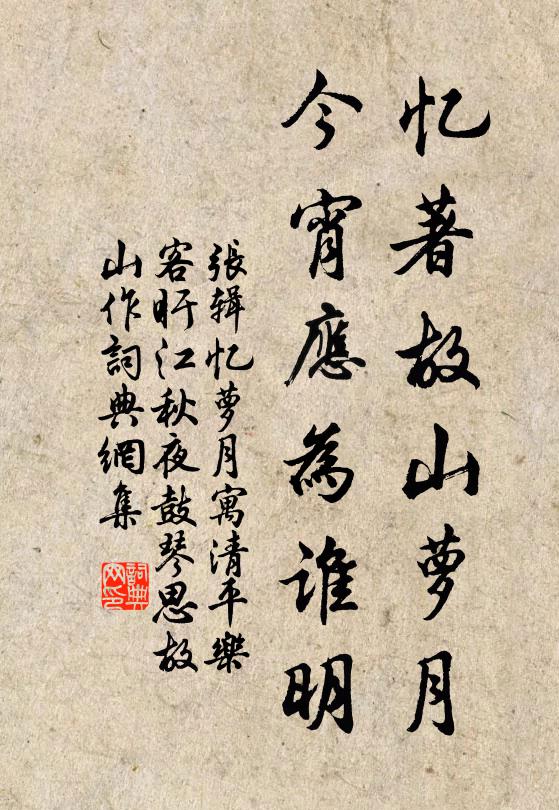 忆著故山萝月
今宵應為谁明
張辑忆萝月寓清平樂
客盱江秋夜鼓琴思故
山作詞典網集
詞典网印